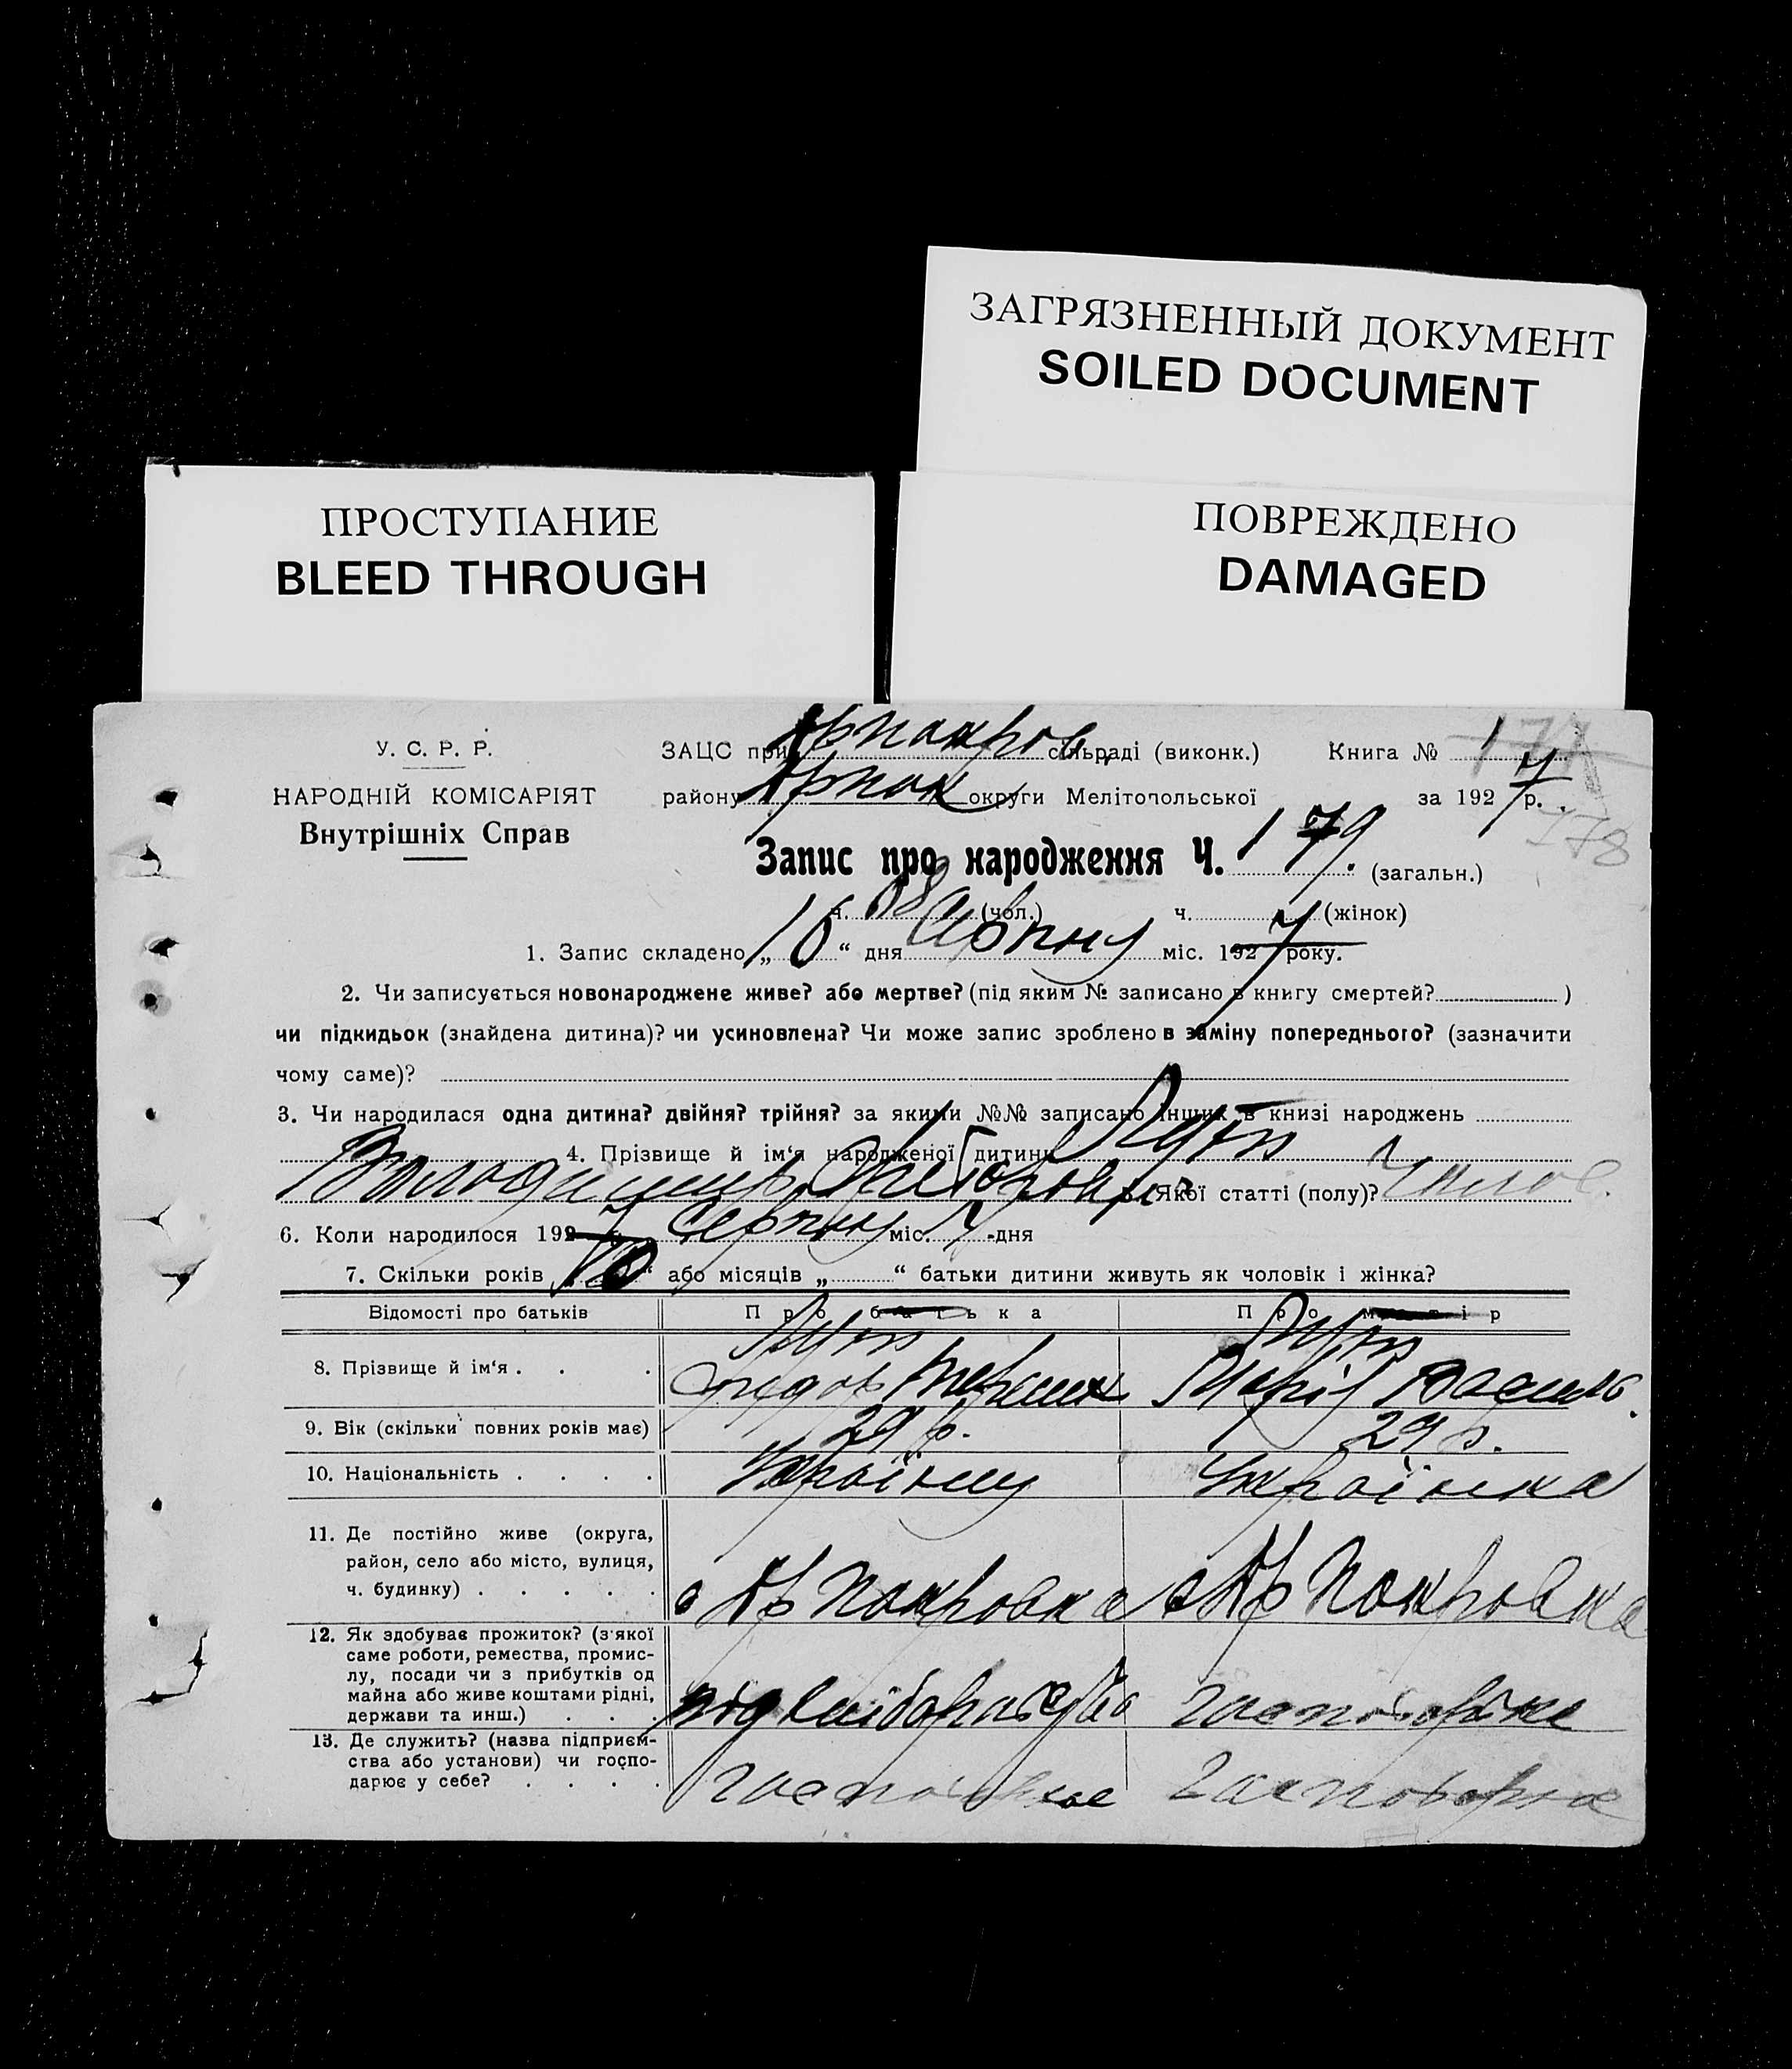 ЗАГРЯЗНЕННЫЙ ДОКУМЕНТ
SOILED DOCUMENT
ПРОСТУПАНИЕ
BLEED THROUGH
ПОВРЕЖДЕНО
DAMAGED
У. С. Р. Р.
НАРОДНІЙ КОМІСАРІЯТ
Внутрішніх Справ
ЗАЦС при сільраді (виконк.) Книга № 1
району округи Мелітопольської за 1927 р.
178
Запис про народження Ч. 179. (загальн.)
ч. 88 (чол.) ч. (жінок)
1. Запис складено „16“ дня міс. 1927 року.
2. Чи записується новонароджене живе? або мертве? (під яким № записано в книгу смертей? )
чи підкидьок (знайдена дитина)? чи усиновлена? Чи може запис зроблено в заміну попереднього? (зазначити
чому саме)?
3. Чи народилася одна дитина? двійня? трійня? за якими №№ записано інших в книзі народжень
4. Прізвище й ім‘я народженої дитини
Володимир 5. Якої статті (полу)? Чолов.
6. Коли народилося 1927 р. Серпня міс. дня
7. Скільки років „10“ або місяців „ “ батьки дитини живуть як чоловік і жінка?
Відомості про батьків Про батька Про матір
8. Прізвище й ім‘я . . .
Марія Василь.
9. Вік (скільки повних років має) 29 р. 29 р.
10. Національність . . . . Українец Українка
11. Де постійно живе (округа,
район, село або місто, вулиця,
ч. будинку) . . . . . с Нр Покровка с Нр Покровка
12. Як здобуває прожиток? (з'якої
саме роботи, ремества, промис-
лу, посади чи з прибутків од
майна або живе коштами рідні,
держави та инш.) . . .
13. Де служить? (назва підприєм-
ства або установи) чи госпо-
дарює у себе? . . . .